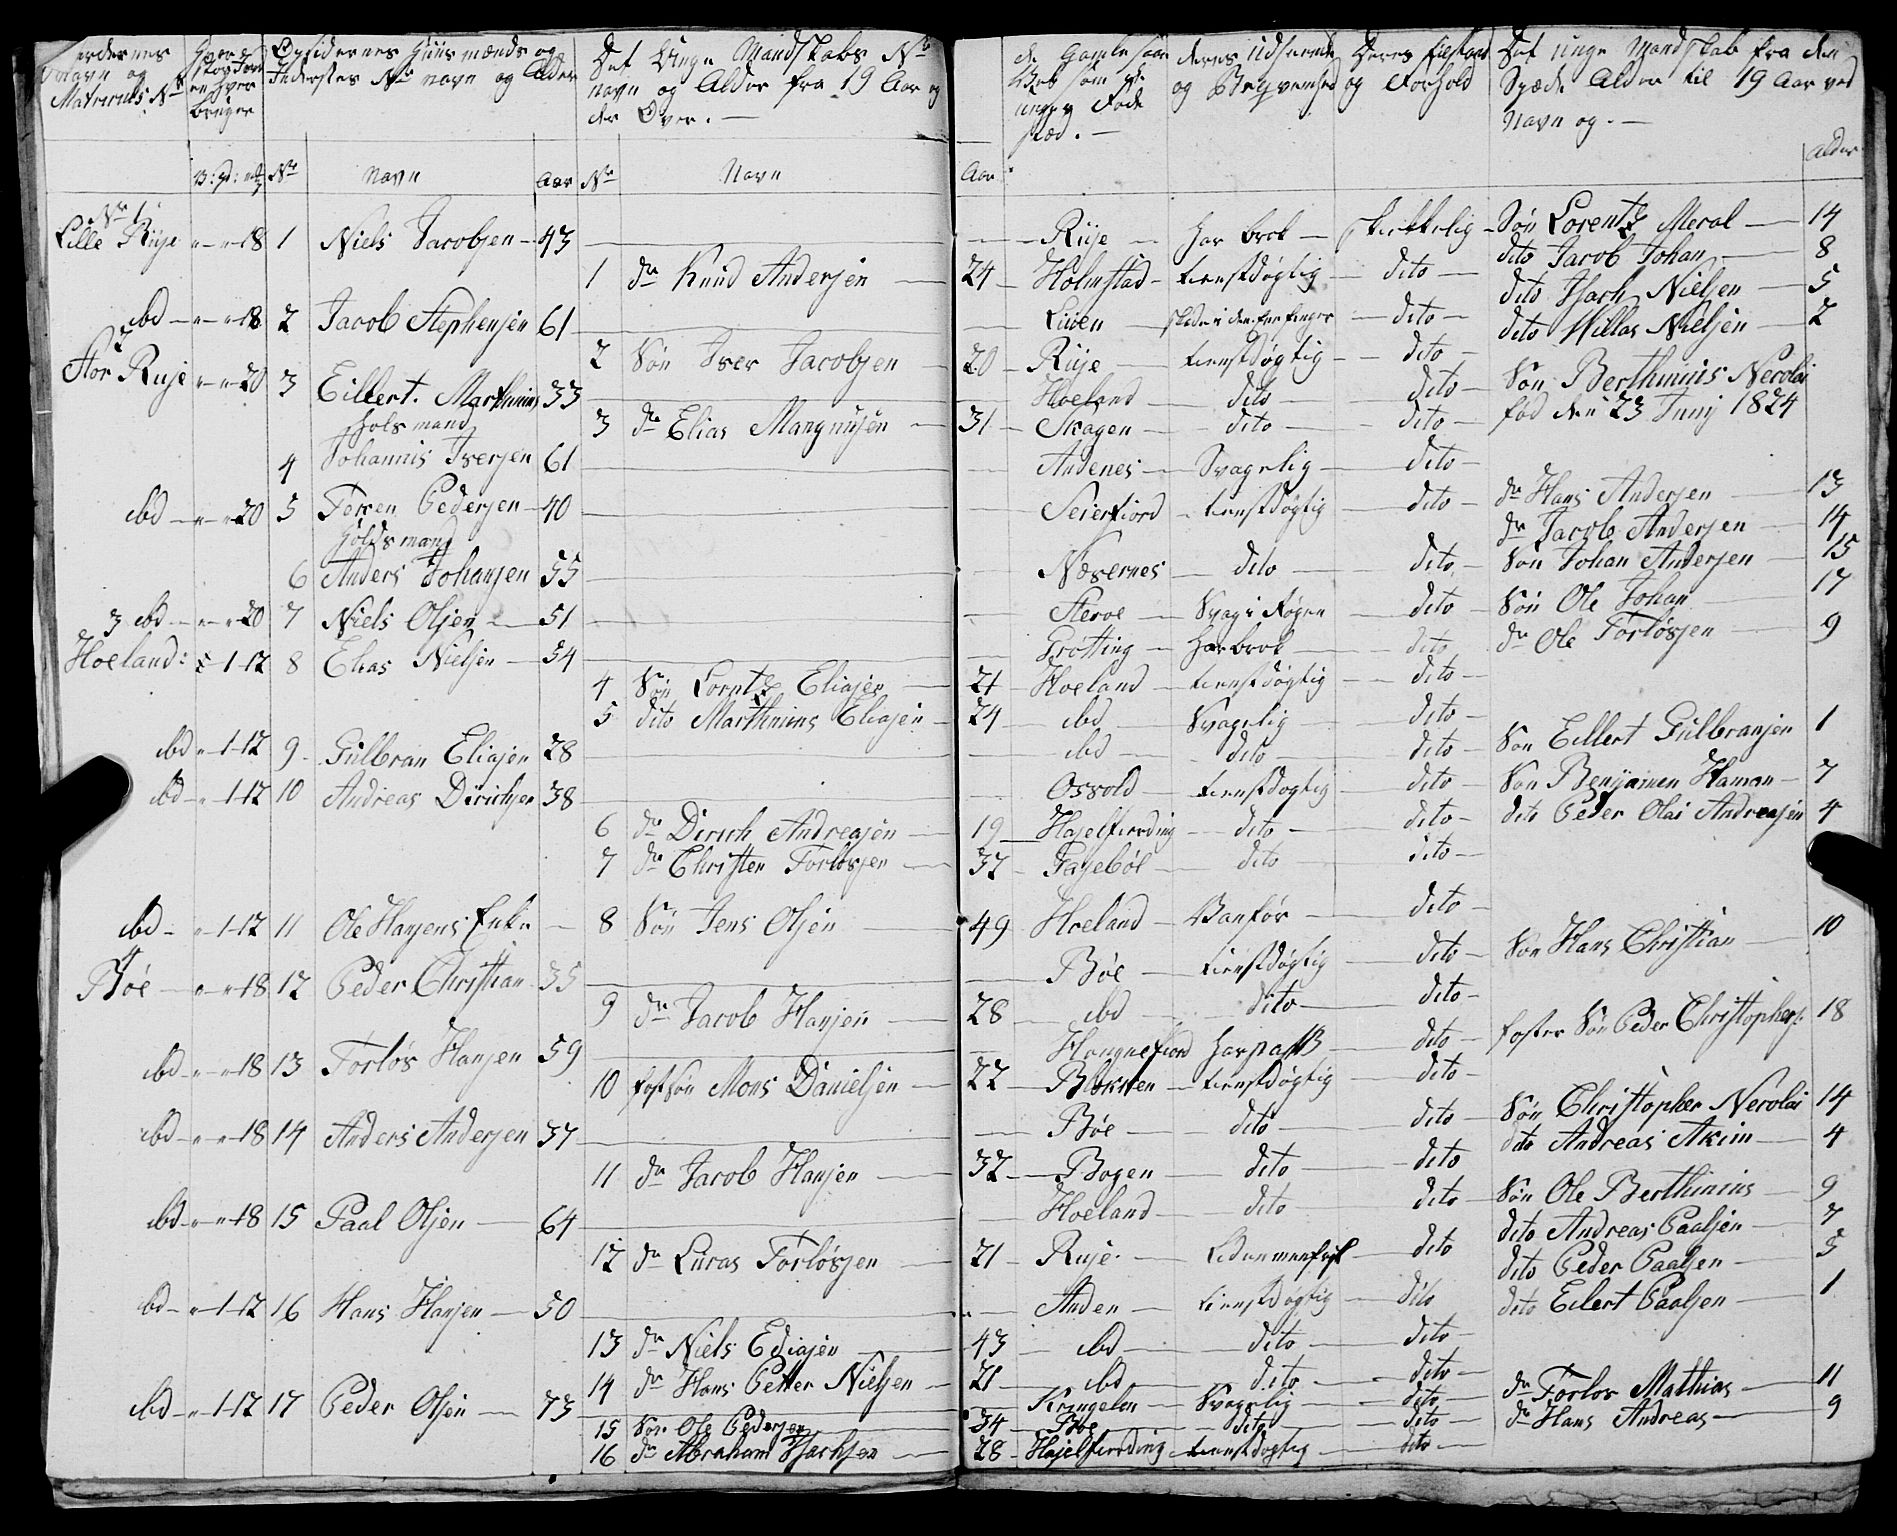 Navn og Matriculs No
Hvor
skog Jord
en hver
bruger
Opsidernes Huusmænds og
Inderstes No navn og Alder
Det Unge Mandskabs No
navn og Alder fra 19 Aar og
der Over. —
de Gamle saa
som de
unges Føde
stæd. —
deres Udseende
og Begvemhed
Deres
og Forhold
Det unge Mandskab fra den
Spæde Alder til 19 Aar ved
Navn og. —
No Navn Aar No Navn Aar Alder
No 1
Lille Ruje 18 1 Niels Jacobsen 43 Ruje har brok skikkelig Søn Lorentz Meral 14
1 dr Knud Andersen 24 Holmstad tienstdøgtig dito dito Jacob Johan 8
dito Hsach Nielsen 5
ibd 18 2 Jacob Stephensen 61 dito dito Hillas Nielsen 2
2 Søn Iver Jacobsen 20 Ruje tienstdøgtig dito
2
Stor Ruje 20 3 Eillert Marthinus 33 Hoeland dito dito Søn Berthinius Nerolai
Holsmand 3 dr Elias Mangnusen 31 Skagen dito dito fød den 23 Junj 1824
4 Johannis Iversen 61 Andenes Svagelig dito
ibd 20 5 Torren Pedersen 40 Seierfiord tienstdøgtig dito dr Hans Andersen 13
Holdsmand dr Jacob Andersen 14
6 Anders Johansen 55 Næsernes dito dito Søn Johan Andersen 15
3 ibd 20 7 Niels Olsen 51 Steroe Svag i Røgen dito Søn Ole Johan 17
Hoeland 1 12 8 Elias Nielsen 54 Grøtting Har brok dito dr Ole Torløsen 9
4 Søn Lorentz Eliasen 21 Hoeland tienstdøgtig dito
5 dito Marthinius Eliasen 24 ibd Svagelig dito
ibd 1 12 9 Gulbran Eliasen 28 ibd dito dito Søn Eillert Gulbransen 1
ibd 1 12 10 Andreas Dirichsen 38 Osvold tienstdøgtig dito Søn Benjamen Haman 7
6 dr Dirich Andreasen 19 Hajelfiording dito dito dito Peder Olai Andreasen 4
7 dr Christen Torløsen 32 dito dito
ibd 1 12 11 Ole Hansens Enke 8 Søn Jens Olsen 49 Hoeland Vanfør dito
4
Bøe 18 12 Peder Christian 35 Bøe tienstdøgtig dito Søn Hans Christian 10
9 dr Jacob Hansen 28 ibd dito dito
ibd 18 13 Torløs Hansen 59 Hangnefiord har pass dito foster Søn Peder Christophers: 18
10 fostsøn Mons Danielsen 22 Blokken tienstdøgtig dito
ibd 18 14 Anders Andersen 37 Bøe dito dito Søn Christopher Nerolai 14
11 dr Jacob Hansen 32 Bogen dito dito dito Andreas Akim 4
ibd 18 15 Paal Olsen 64 Hoeland dito dito Søn Ole Berthinius 9
12 dr Lucas Torløsen 21 Ruje dito dito Andreas Paalsen 7
dito Peder Paalsen 5
ibd 1 12 16 Hans Hansen 50 Anden tienstdøgtig dito dito Eilert Paalsen 1
13 dr Niels Ediasen 43 ibd dito dito
14 dr Hans Petter Nielsen 21 ibd dito dito
ibd 1 12 17 Peder Olsen 73 Kringelen Svagelig dito dr Torløs Mathias 11
15 Søn Ole Pedersen 34 Bøe dito dito dr Hans Andreas 9
16 dr Abraham Hjachsen 28 Hajelfiording tienstdøgtig dito